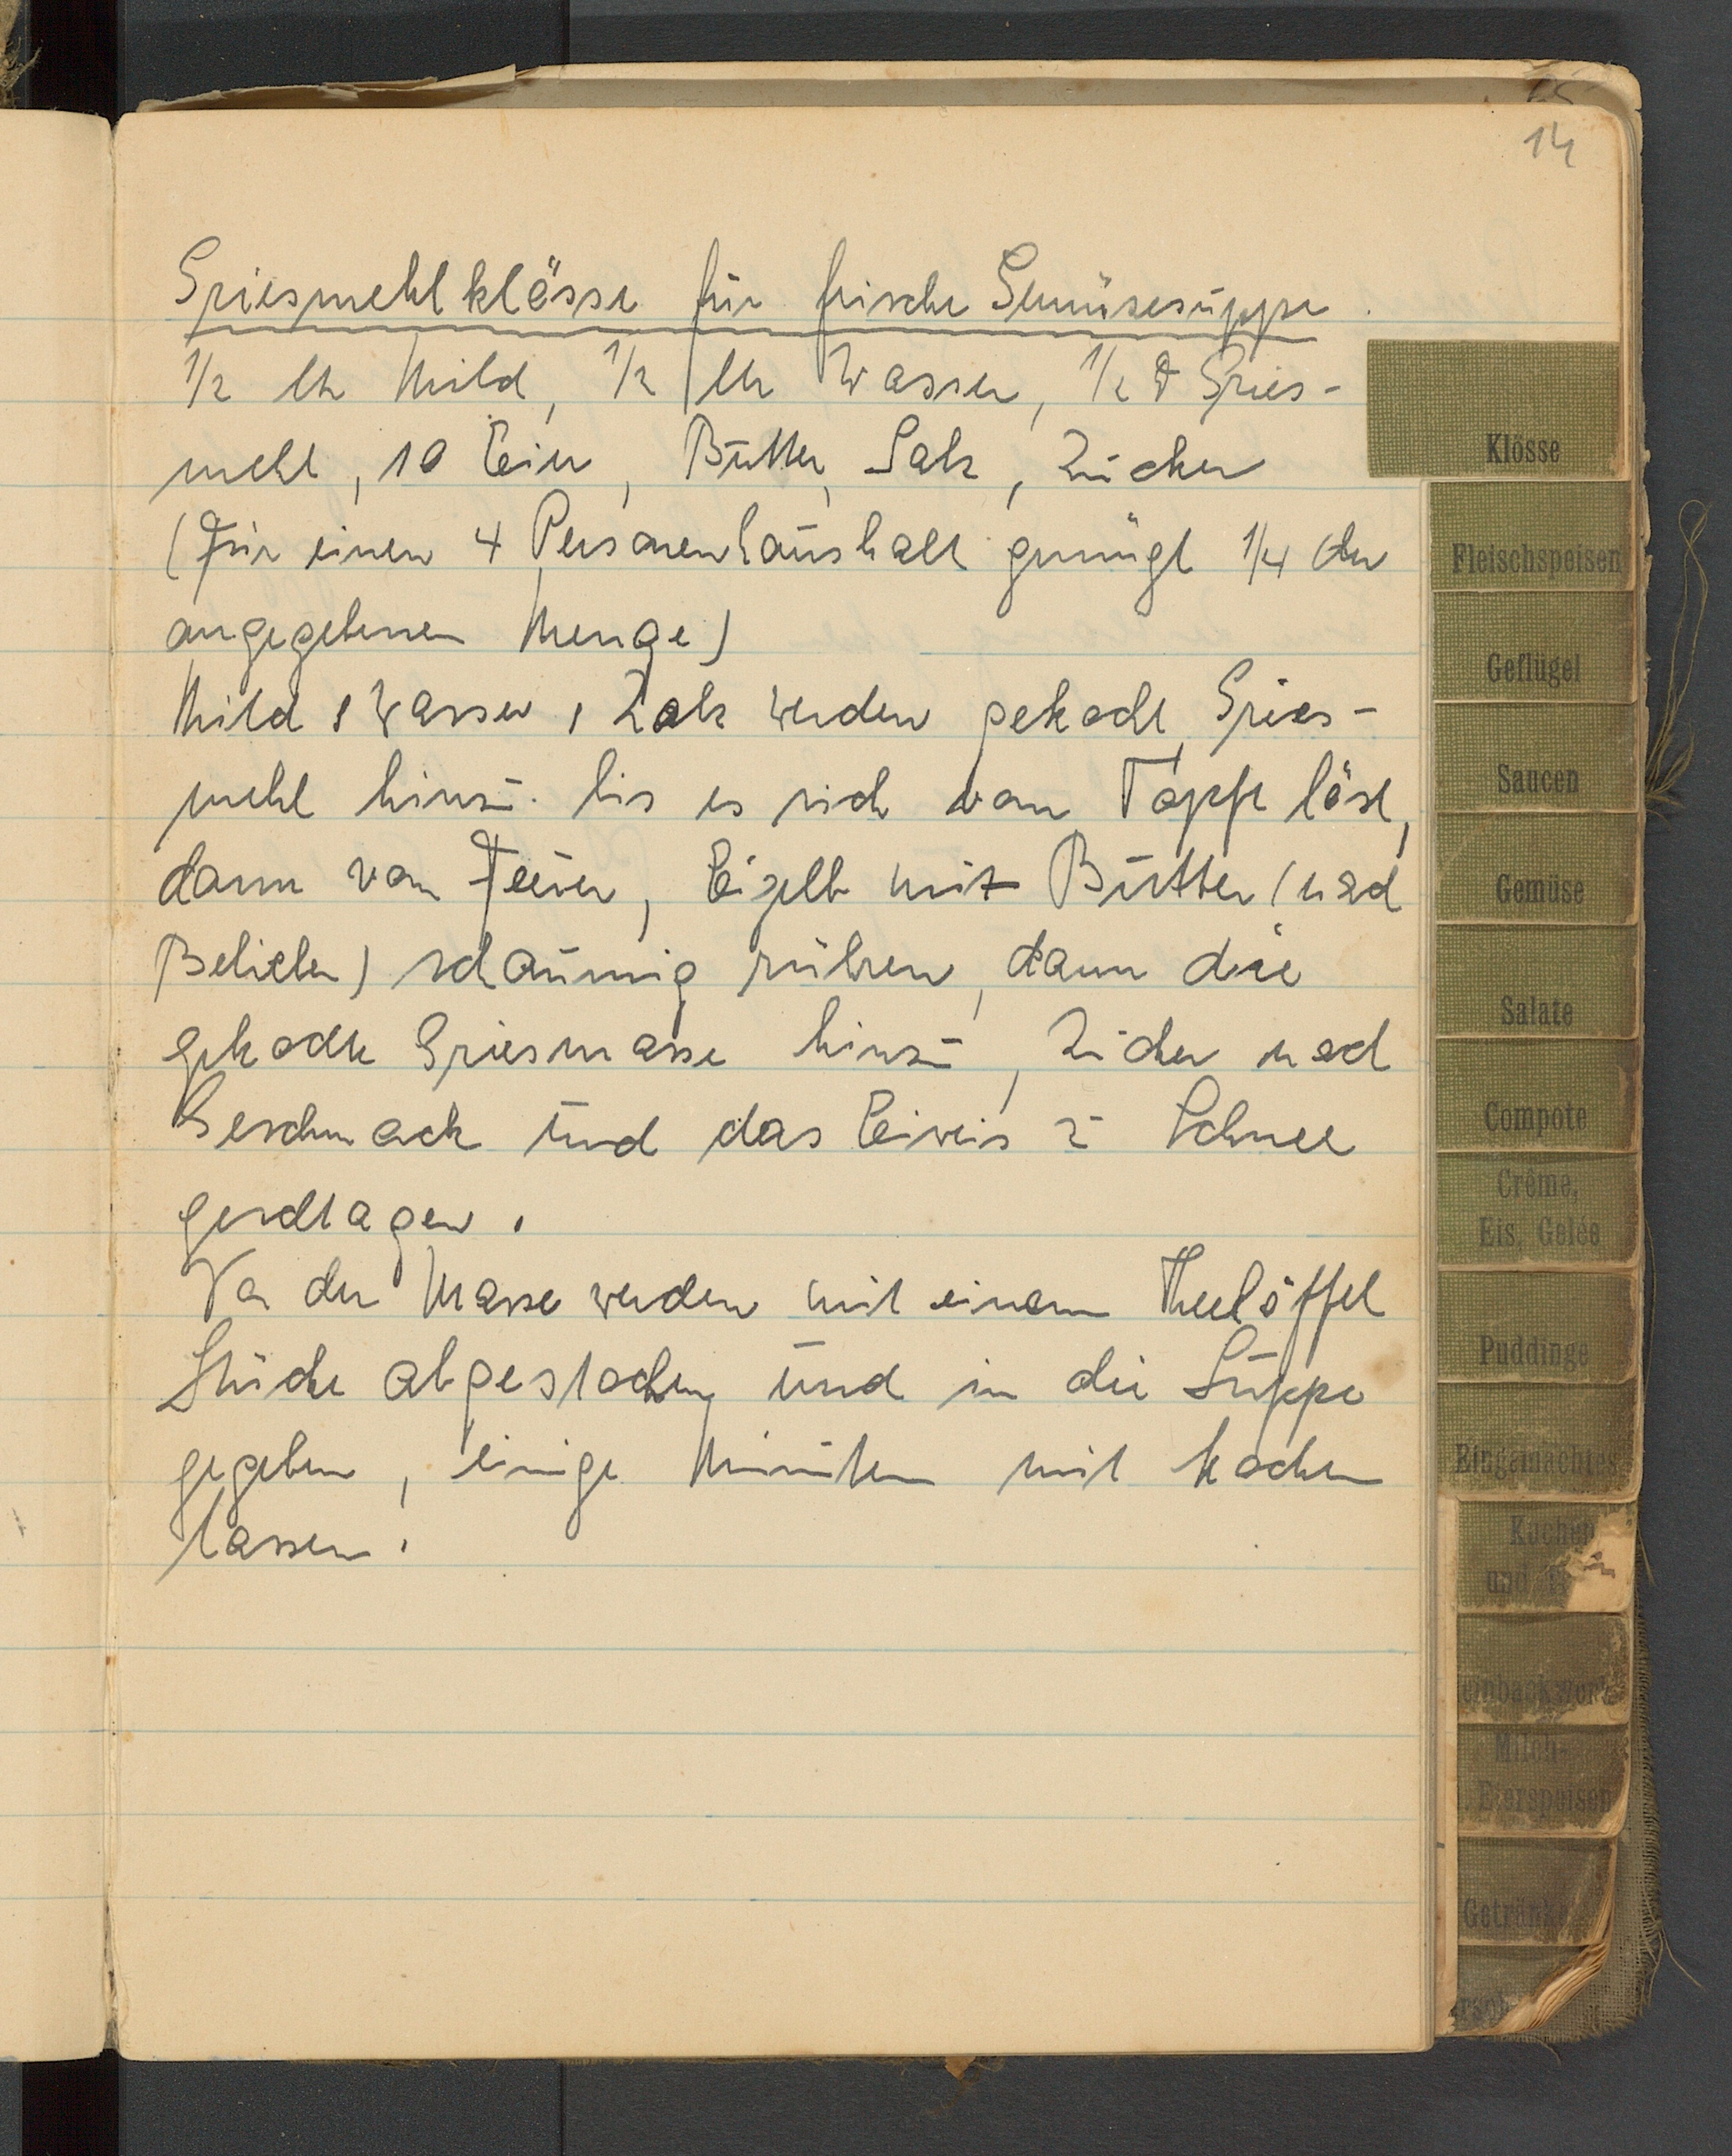 14
Griesmehlklösse für frische Gemüsesuppe.
1/2 ltr Milch, 1/2 ltr Wasser, 1/2 ℔ Gries-
mehl, 10 Eier, Butter, Salz, Zucker
(Für einen 4 Personenhaushalt genügt 1/4 der
angegebenen Menge)
Milch, Wasser, Salz werden gekocht, Gries-
mehl hinzu. bis es sich vom Topfe löst,
dann vom Feuer, Eigelb mit Butter (nach
Belieben) schaumig rühren, dann die
gekochte Griesmasse hinzu, Zucker nach
Geschmack und das Eiweis z Schnee
geschlagen.
Von der Masse werden mit einem Theelöffel
Stücke abgestochen und in die Suppe
gegeben, einige Minuten mit kochen
lassen.
Klösse
Fleischspeisen
Geflügel
Saucen
Gemüse
Salate
Compote
Crême,
Eis, Gelée
Puddinge
Eingemachtes
Kuchen
und
einbackwerk
Milch-
Eierspeisen
Getränke